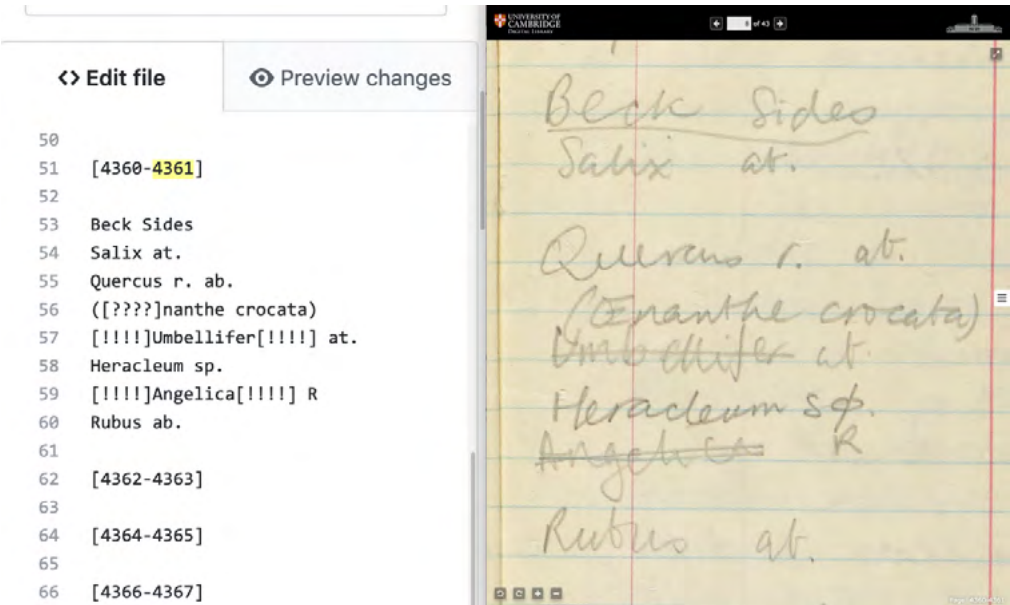 <> Edit file
Preview changes
50
51 [4360-4361]
52
53 Beck Sides
54 Salix at.
55 Quercus r. ab.
56 ([????]nanthe crocata)
57 [!!!!]Umbellifer[!!!!] at.
58 Heracleum sp.
59 [!!!!]Angelica[!!!!] R
60 Rubus ab.
61
62 [4362-4363]
63
64 [4364-4365]
65
66 [4366-4367]
UNIVERSITY OF
CAMBRIDGE
DIGITAL LIBRARY
of 43
Beck Sides
Salix at.
Quercus r. ab.
(Œnanthe crocata)
Umbellifer at.
Heracleum sp.
Angelica R
Rubus ab.